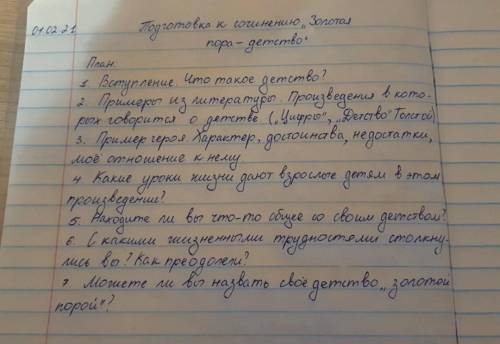 01.02.21
Подготовка к сочинению „Золотая
пора – детство“
План:
1. Вступление. Что такое детство?
2. Примеры из литературы. Произведения в кото-
рых говорится о детстве. („Цифры“, „Детство“ Толстой)
3. Пример героя. Характер, достоинства, недостатки,
моё отношение к нему
4. Какие уроки жизни дают взрослые детям в этом
произведение?
5. Находите ли вы что-то общее со своим детством?
6. С какими жизненными трудностями столкну-
лись вы? Как преодолели?
7. Можете ли вы назвать своё детство „золотой
порой“?